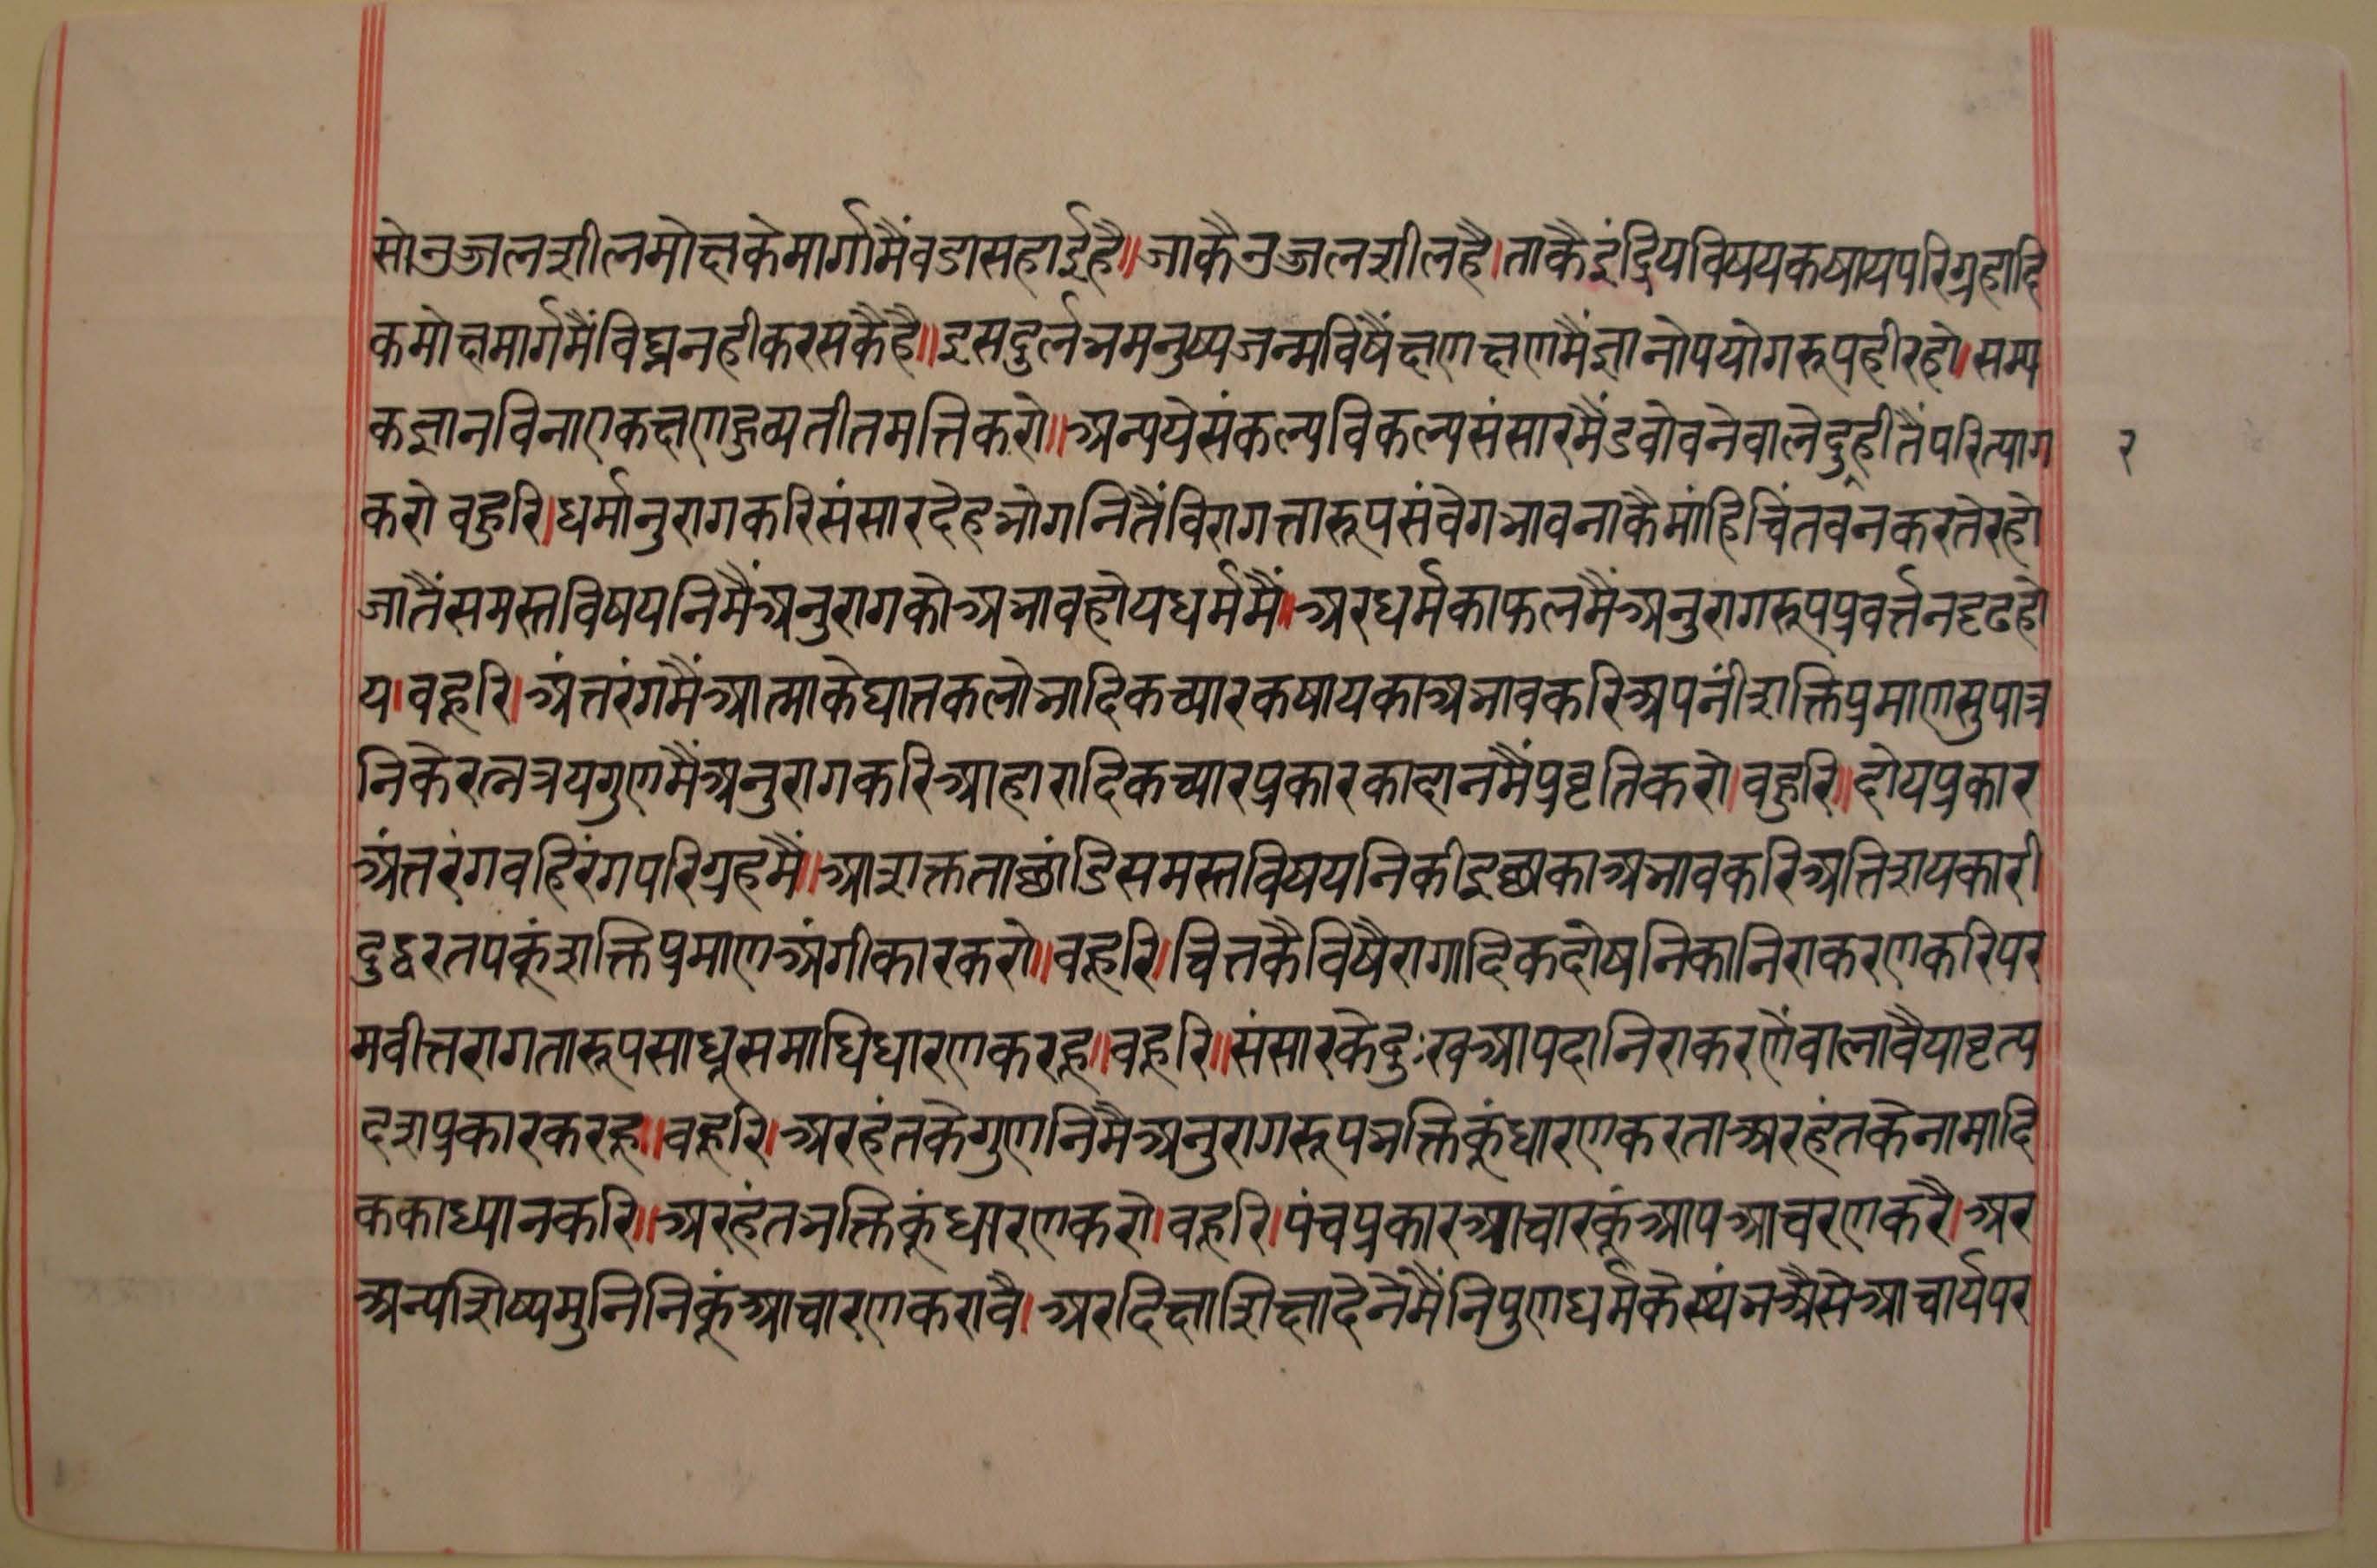 सोउज्जलशीलमोक्षकेमार्गमैंवडासहाईहै॥जाकैउज्जलशीलहै।ताकैइंद्रियविषयकषायपरिग्रहादि
कमोक्षमार्गमैंविघ्ननहीकरसकैहै॥इसदुर्लभमनुष्यजन्मविषैंक्षणक्षणमैंज्ञानोपयोगरूपहीरहो।सम्य
कज्ञानविनाएकक्षणहुव्यतीतमत्तिकरो॥अन्यये संकल्पविकल्पसंसारमैंडवोवनेवालेदुहीतैंपरित्याग
२
करो वहुरि।धर्मानुरागकरिसंसारदेहभोगनितैंविरागत्तारूपसंवेगभावनाकैमांहिचिंतवनकरतेरहो
जातैंसमस्तविषयनिमैंअनुरागकोअभावहोयधर्ममैं।अरधर्मकाफलमैंअनुरागरूपप्रवर्त्तनदृढहो
य।वहूरि।अंत्तरंगमैंआत्माकेघातकलोभादिकच्यारकषायकाअभावकरिअपनींशक्तिप्रमाणसुपात्र
निकेरत्नत्रयगुणमैंअनुरागकरिआहारादिकच्यारप्रकारकादानमैंप्रवृतिकरो।वहुरि॥दोयप्रकार
अंत्तरंगवहिरंगपरिग्रहमैं॥आशक्तताछांडिसमस्तविषयनिकीइछाकाअभावकरिअत्तिशयकारी
दुद्धरतपकूंशक्तिप्रमाणअंगीकारकरो॥वहूरि।चित्तकैविषैरागादिकदोषनिकानिराकरणकरिपर
मवीत्तरागतारूपसाधूसमाधिधारणकरहू॥वहूरि॥संसारकेदुःखआपदानिराकरणैंवालावैयावृत्य
दशप्रकारकरहू॥वहूरि।अरहंतकेगुणनिमैअनुरागरूपभक्तिकूंधारणकरताअरहंतकेनामादि
ककाध्यानकरि॥अरहंतभक्तिकूंधारणकरो।वहूरि।पंचप्रकारआचारकूंआपआचरणकरै।अर
अन्यशिष्यमुनिनिकूंआचारणकरावै।अरदिक्षाशिक्षादेनेमैंनिपुणधर्मकेस्थंभअैसेआचार्यपर